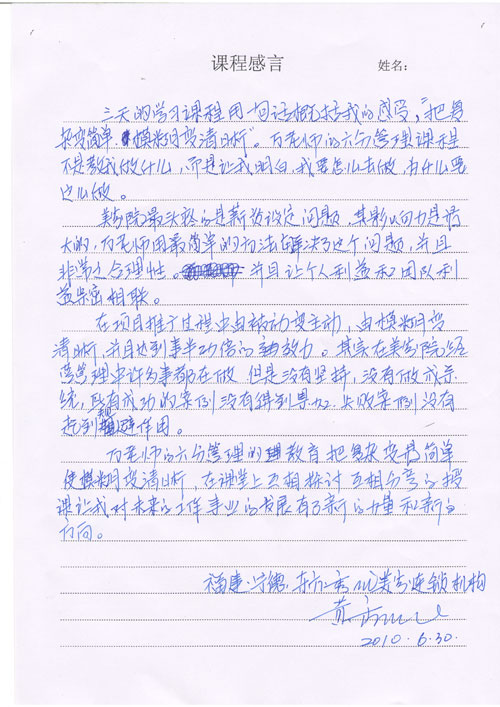 课程感言 姓名:
三天的学习课程用一句话概括我的感受,“把复
杂变简单,模糊变清晰”。万老师的六分管理课程
不是教我做什么,而是让我明白,我要怎么去做,为什么要
这么做。
美容院最头疼的是薪资设定问题,其影响力是最
大的,万老师用最简单的方法解决了这个问题,并且
非常之合理性。并且让个人利益和团队利
益紧密相联。
在项目推广过程中由被动变主动,由模糊变
清晰,并且达到事半功倍的效力。其实在美容院经
营管理中许多事都在做 但是没有坚持,没有做成系
统,既有成功的案例没有得到累加 失败案例没有
起到避作用。
万老师的六分管理的教育 把复杂变得简单
使模糊变清晰,在课堂上互相探讨 互相分享的授
课让我对未来的工作事业的发展有了新的力量和新的
方向。
福建·宁德 东方秀 美容连锁机构
黄
2010.6.30.